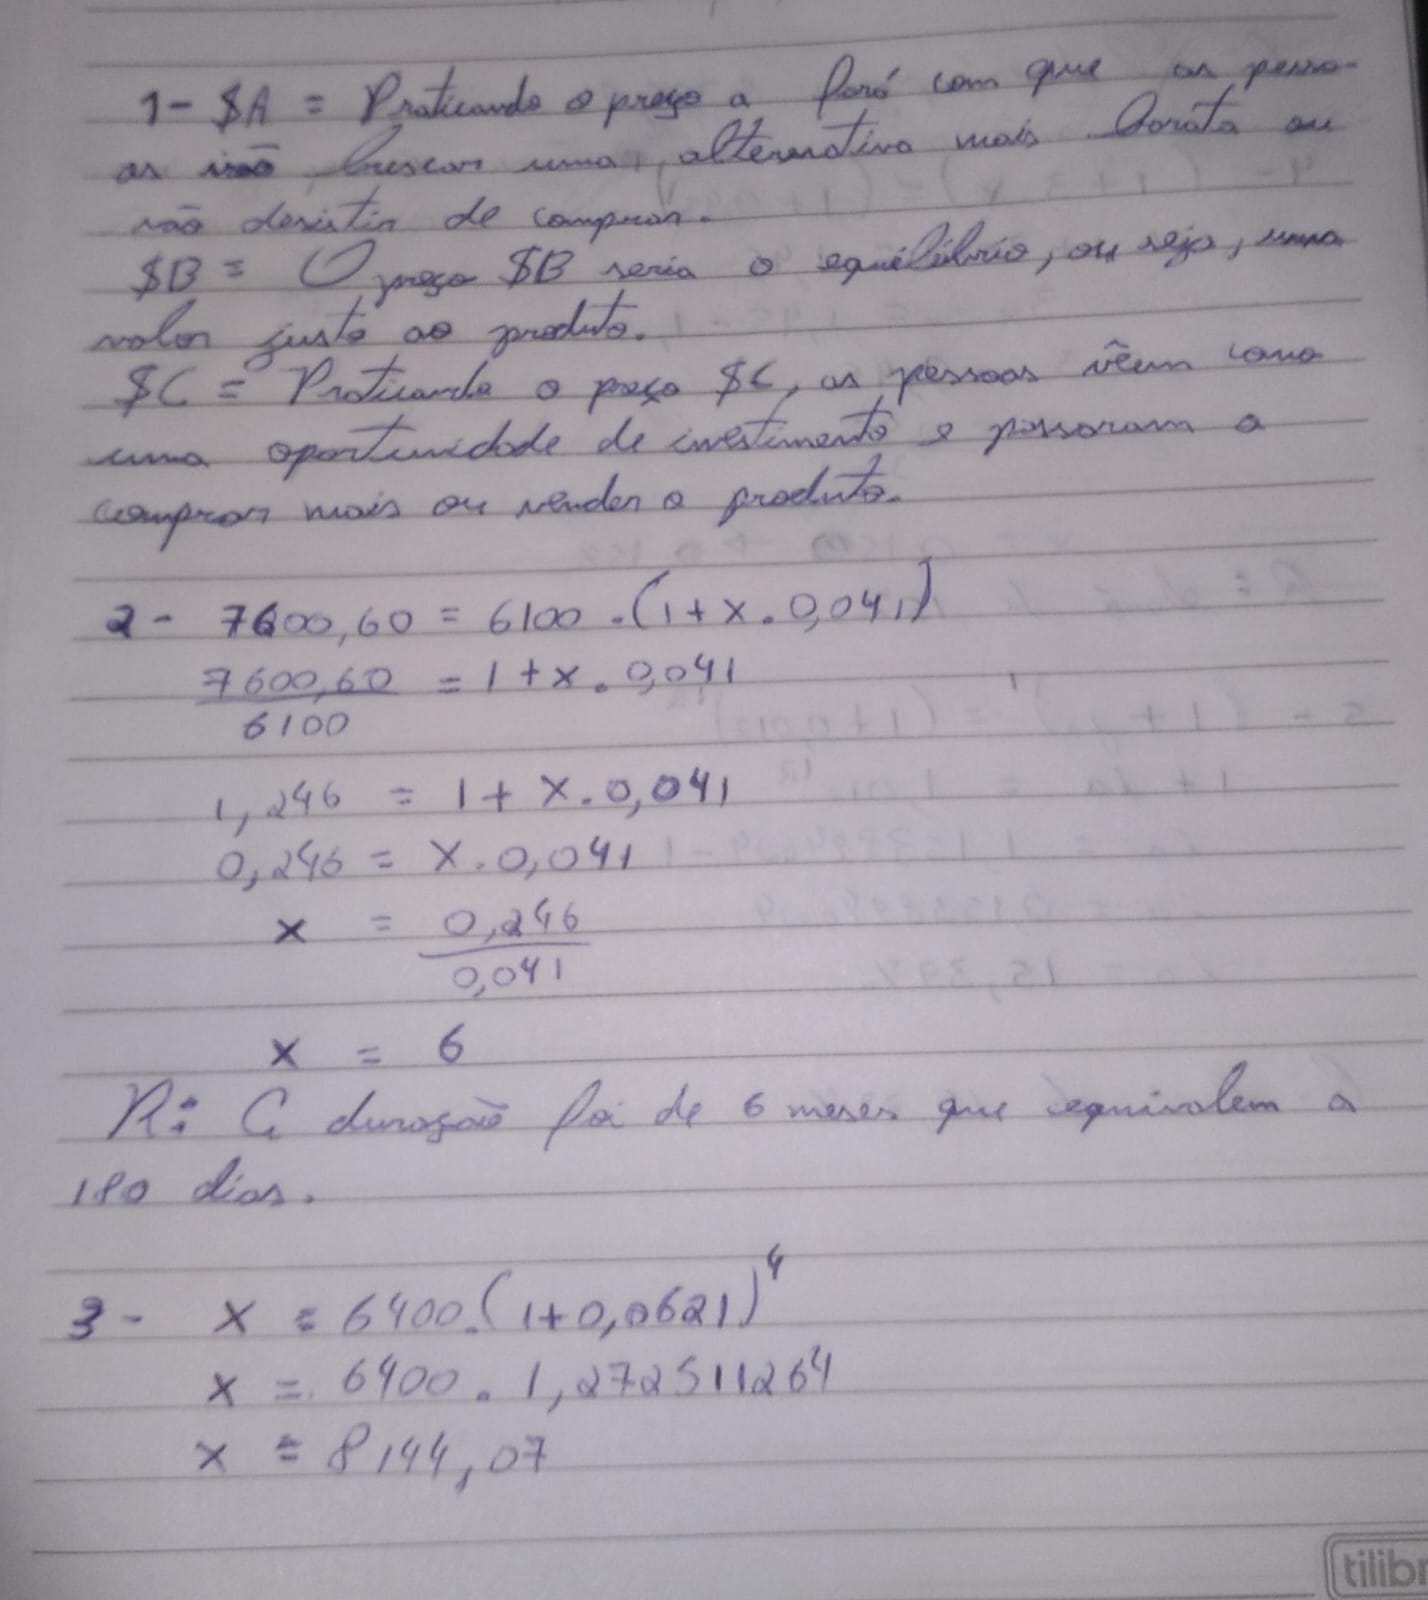 1- $A = Praticando o preço a fará com que as pesso-
as irão buscar uma, alternativa mais barata ou
não desistir de comprar.
$B = O preço $B seria o equilíbrio, ou seja, uma
valor justo ao produto.
$C = Praticando o preço $C, as pessoas vêem como
uma oportunidade de investimento e passaram a
comprar mais ou vender o produto.
2- 7600,60 = 6100 . (1 + x . 0,041)
7600,60 = 1 + x . 0,041
6100
1,246 = 1 + x . 0,041
0,246 = x . 0,041
x = 0,246
0,041
x = 6
R: A duração foi de 6 meses que equivalem a
180 dias.
3- x = 6400 . (1 + 0,0621)⁴
x = 6400 . 1,272511264
x = 8144,07
tilibr